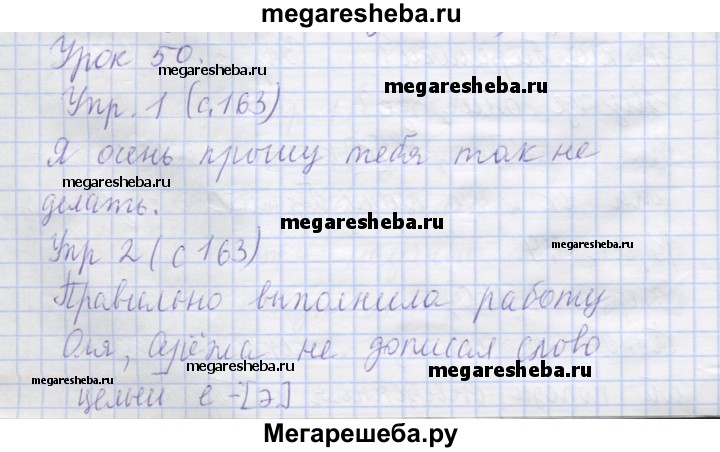 megaresheba.ru
Урок 50.
megaresheba.ru
megaresheba.ru
Упр. 1 (с.163)
megaresheba.ru
Я осень прошу тебя так не
megaresheba.ru
делать.
megaresheba.ru
Упр 2 (с 163)
megaresheba.ru
Правильно выполнила работу
Оля, Серёжа не дописал слово
megaresheba.ru
megaresheba.ru
megaresheba.ru
е -[э]
Мегарешеба.ру